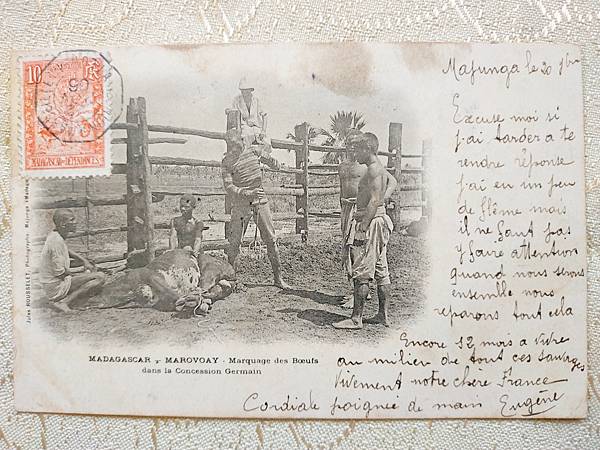 10
RF
MADAGASCAR et DÉPENDANCES
Majunga le 20 9bre
Excuse moi si
j'ai tarder a te
rendre réponse
j'ai eu un peu
de flême mais
il ne faut pas
y faire attention
quand nous serons
ensemble nous
reparons tout cela
Encore 12 mois a vivre
au milieu de tout ces sauvages
Vivement notre chère France
Cordiale poignée de main Eugène
MADAGASCAR - MAROVOAY - Marquage des Bœufs
dans la Concession Germain